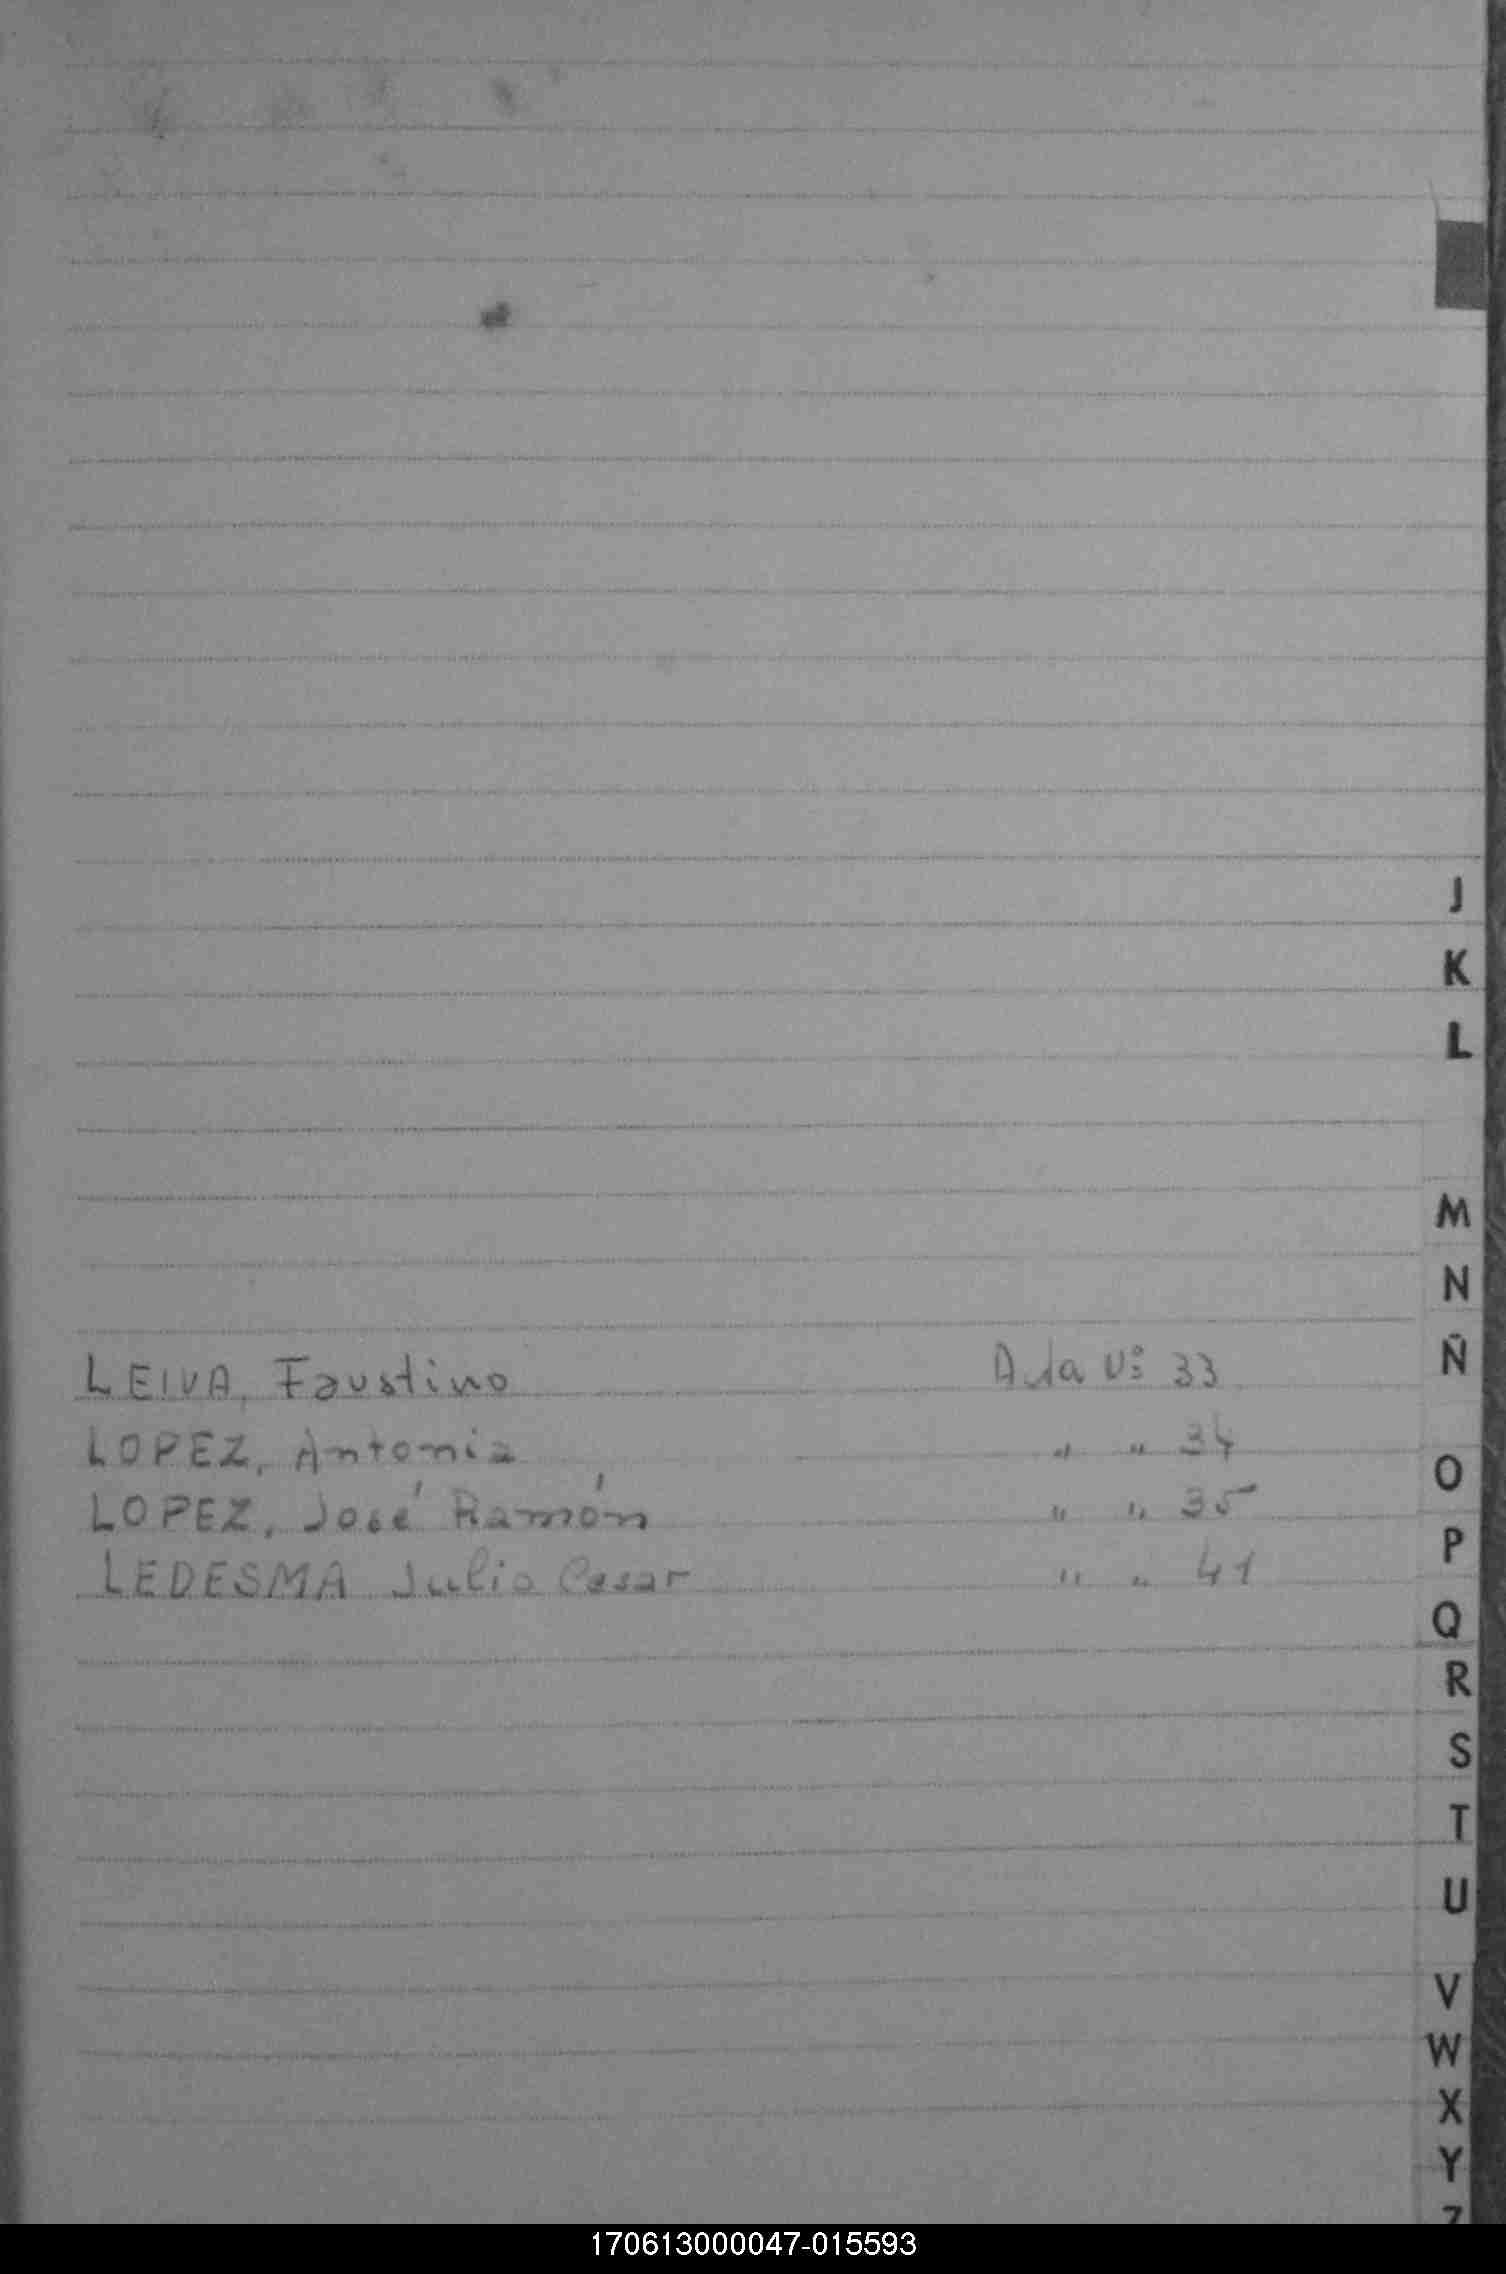 J
K
L
M
N
Ñ
LEIVA, Faustino Acta Nº 33
LOPEZ, Antonia " " 34
O
LOPEZ, José Ramón " " 35
P
LEDESMA Julio Cesar " " 41
Q
R
S
T
U
V
W
X
Y
Z
170613000047-015593